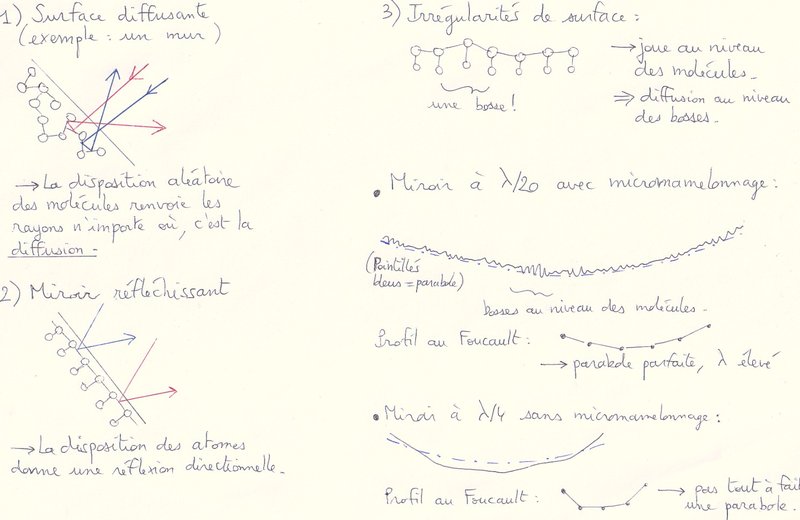 1) Surface diffusante
(exemple : un mur)
→ La disposition aléatoire
des molécules renvoie les
rayons n'importe où, c'est la
diffusion.
2) Miroir réfléchissant
→ La disposition des atomes
donne une réflexion directionnelle.
3) Irrégularités de surface :
une bosse !
→ joue au niveau
des molécules.
⇒ diffusion au niveau
des bosses.
• Miroir à λ/20 avec micromamelonnage :
(Pointillés
bleus = parabole)
bosses au niveau des molécules.
Profil au Foucault :
→ parabole parfaite, λ élevé
• Miroir à λ/4 sans micromamelonnage :
Profil au Foucault :
→ pas tout à fait
une parabole.